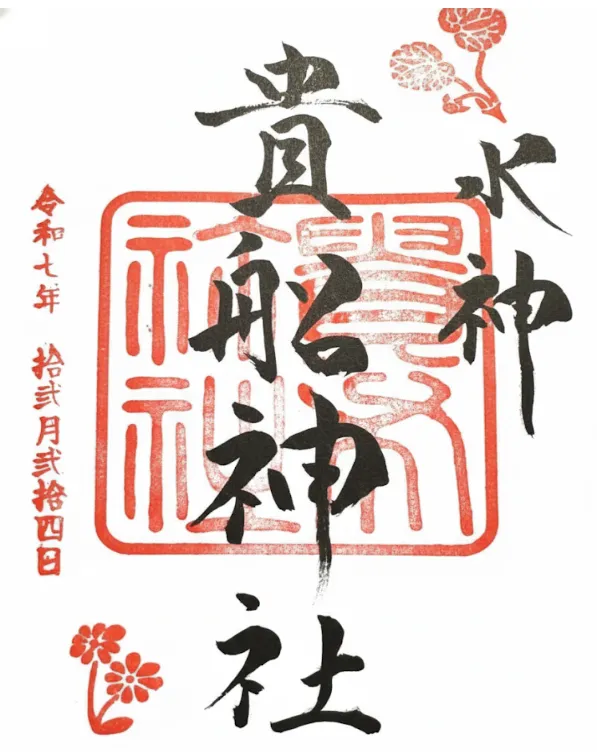 水神
貴船神社
令和七年 拾弐月弐拾四日